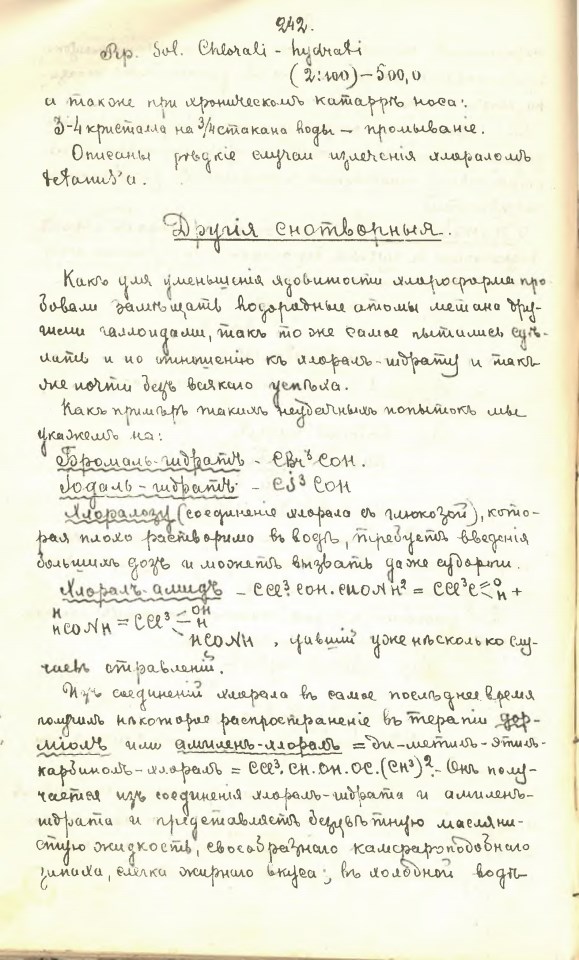 242.
Rp. Sol. Chlorali-hydrati
(2:100) – 500,0
и также при хроническомъ катаррѣ носа:
3-4 кристалла на 3/4 стакана воды – промываніе.
Описаны рѣдкіе случаи излеченія хлораломъ
tetanus'а.
Другія снотворныя.
Какъ для уменьшенія ядовитости хлороформа про-
бовали замѣщать водородные атомы метана дру-
гими галлоидами, такъ то же самое пытались сдѣ-
лать и по отношенію къ хлоралъ-гидрату и такъ
же почти безъ всякаго успѣха.
Какъ примѣръ такихъ неудачныхъ попытокъ мы
укажемъ на:
Бромаль-гидратъ – CBr³COH.
Іодаль-гидратъ – CJ³COH
Хлоралозу (соединеніе хлорала съ глюкозой), кото-
рая плохо растворима въ водѣ, требуетъ введенія
большихъ дозъ и можетъ вызвать даже судороги.
Хлоралъ-амидъ – CCl³.COH.CHONH² = CCl³C=O H +
H
HCONH = CCl³ = OH H
HCONH, давшій уже нѣсколько слу-
чаевъ отравленій.
Изъ соединеній хлорала въ самое послѣднее время
получилъ нѣкоторое распространеніе въ терапіи дор-
міолъ или амиленъ-хлоралъ = ди-метилъ-этилъ-
карбинолъ-хлоралъ = CCl³.CH.OH.OC.(CH³)². Онъ полу-
чается изъ соединенія хлоралъ-гидрата и амиленъ-
гидрата и представляетъ безцвѣтную маслянис-
тую жидкость, своеобразнаго камфароподобнаго
запаха, слегка жирнаго вкуса; въ холодной водѣ